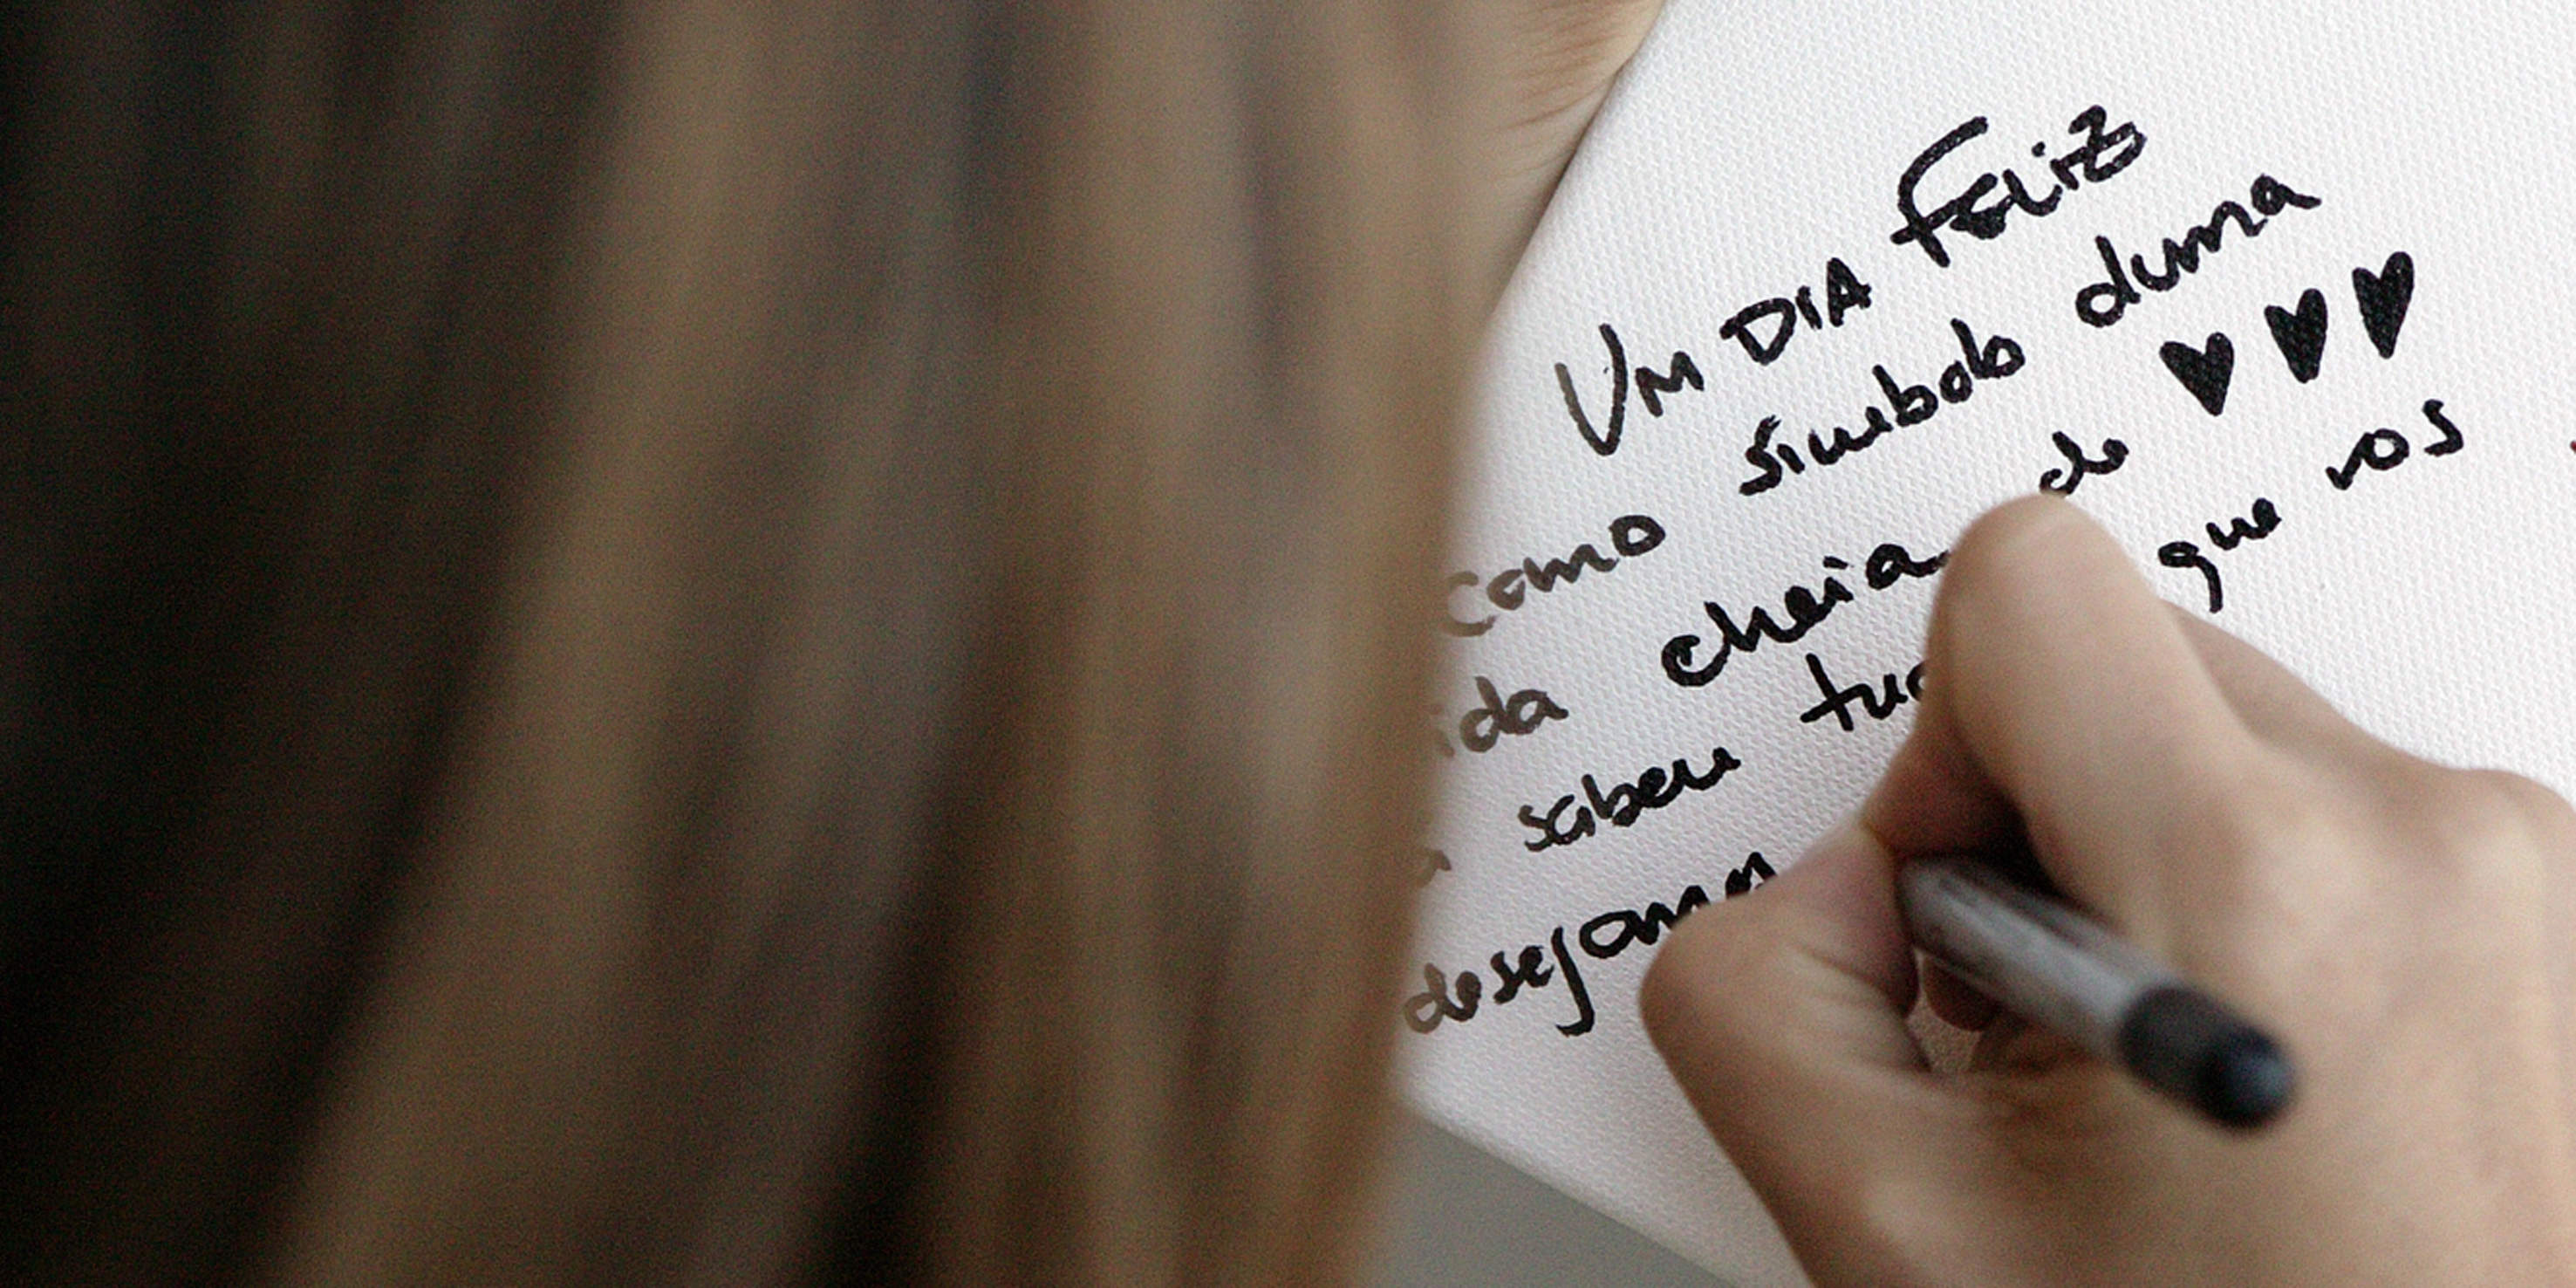 Um DIA Feliz
como simbolo duma
ida cheia de ♥ ♥ ♥
saben que vos
desejamo